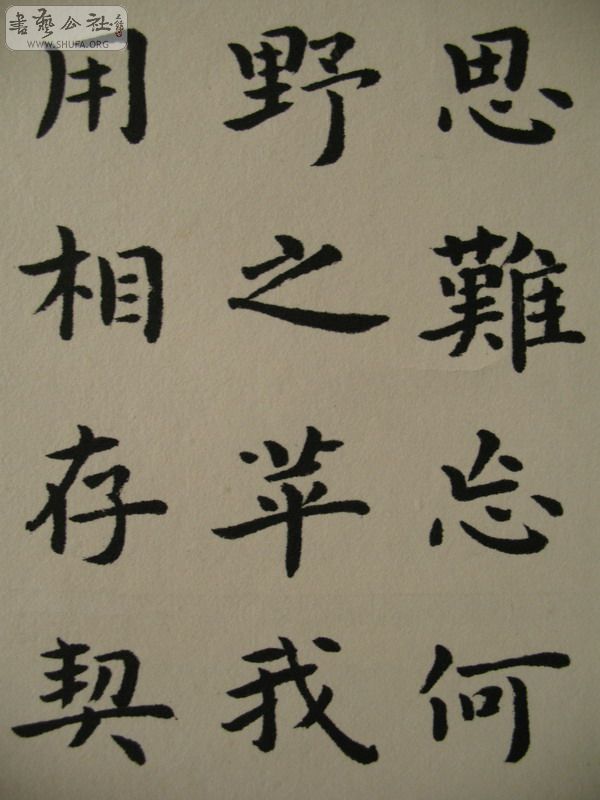 思難忘何
野之苹我
用相存契
書藝公社
WWW.SHUFA.ORG